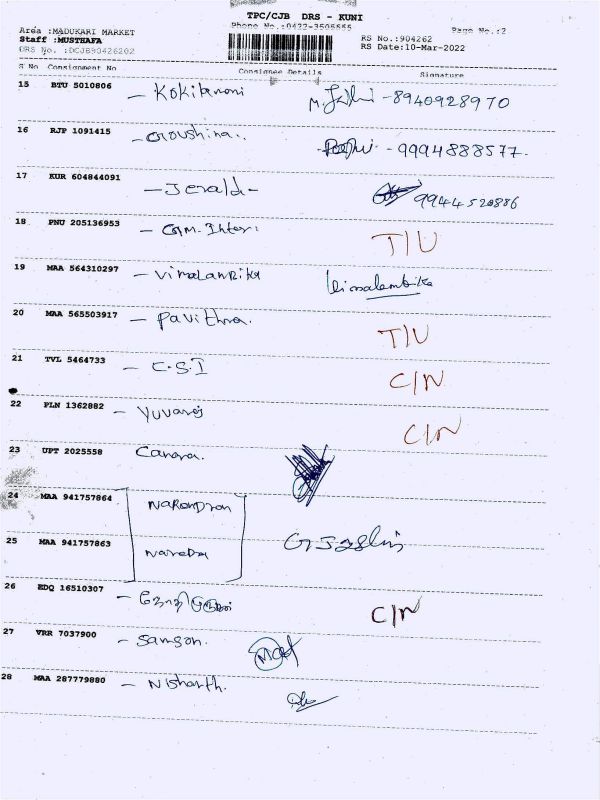 TPC/CJB DRS - KUNI
Phone No.:0422-3505555
Area :MADUKARI MARKET
Page No.:2
Staff :MUSTHAFA
RS No.:904262
DRS No. :DCJB90426202
RS Date:10-Mar-2022
S No Consignment No Consignee Details Signature
15 BTU 5010806 - Kokilamani 8940928970
16 RJP 1091415 - Groushina. - 9994888577.
17 KUR 604844091 - Jerald - 9944520886
18 PNU 205136953 - G.M. T/U
19 MAA 564310297 - Vimalambika Vimalambika
20 MAA 565503917 - Pavithra. T/U
21 TVL 5464733 - C.S.I C/N
22 PLN 1362882 - Yuvaraj C/N
23 UPT 2025558 Canara.
24 MAA 941757864 Narendran
25 MAA 941757863 Narendra
26 EDQ 16510307 - C/N
27 VRR 7037900 - Samson.
28 MAA 287779880 - Nishanth.